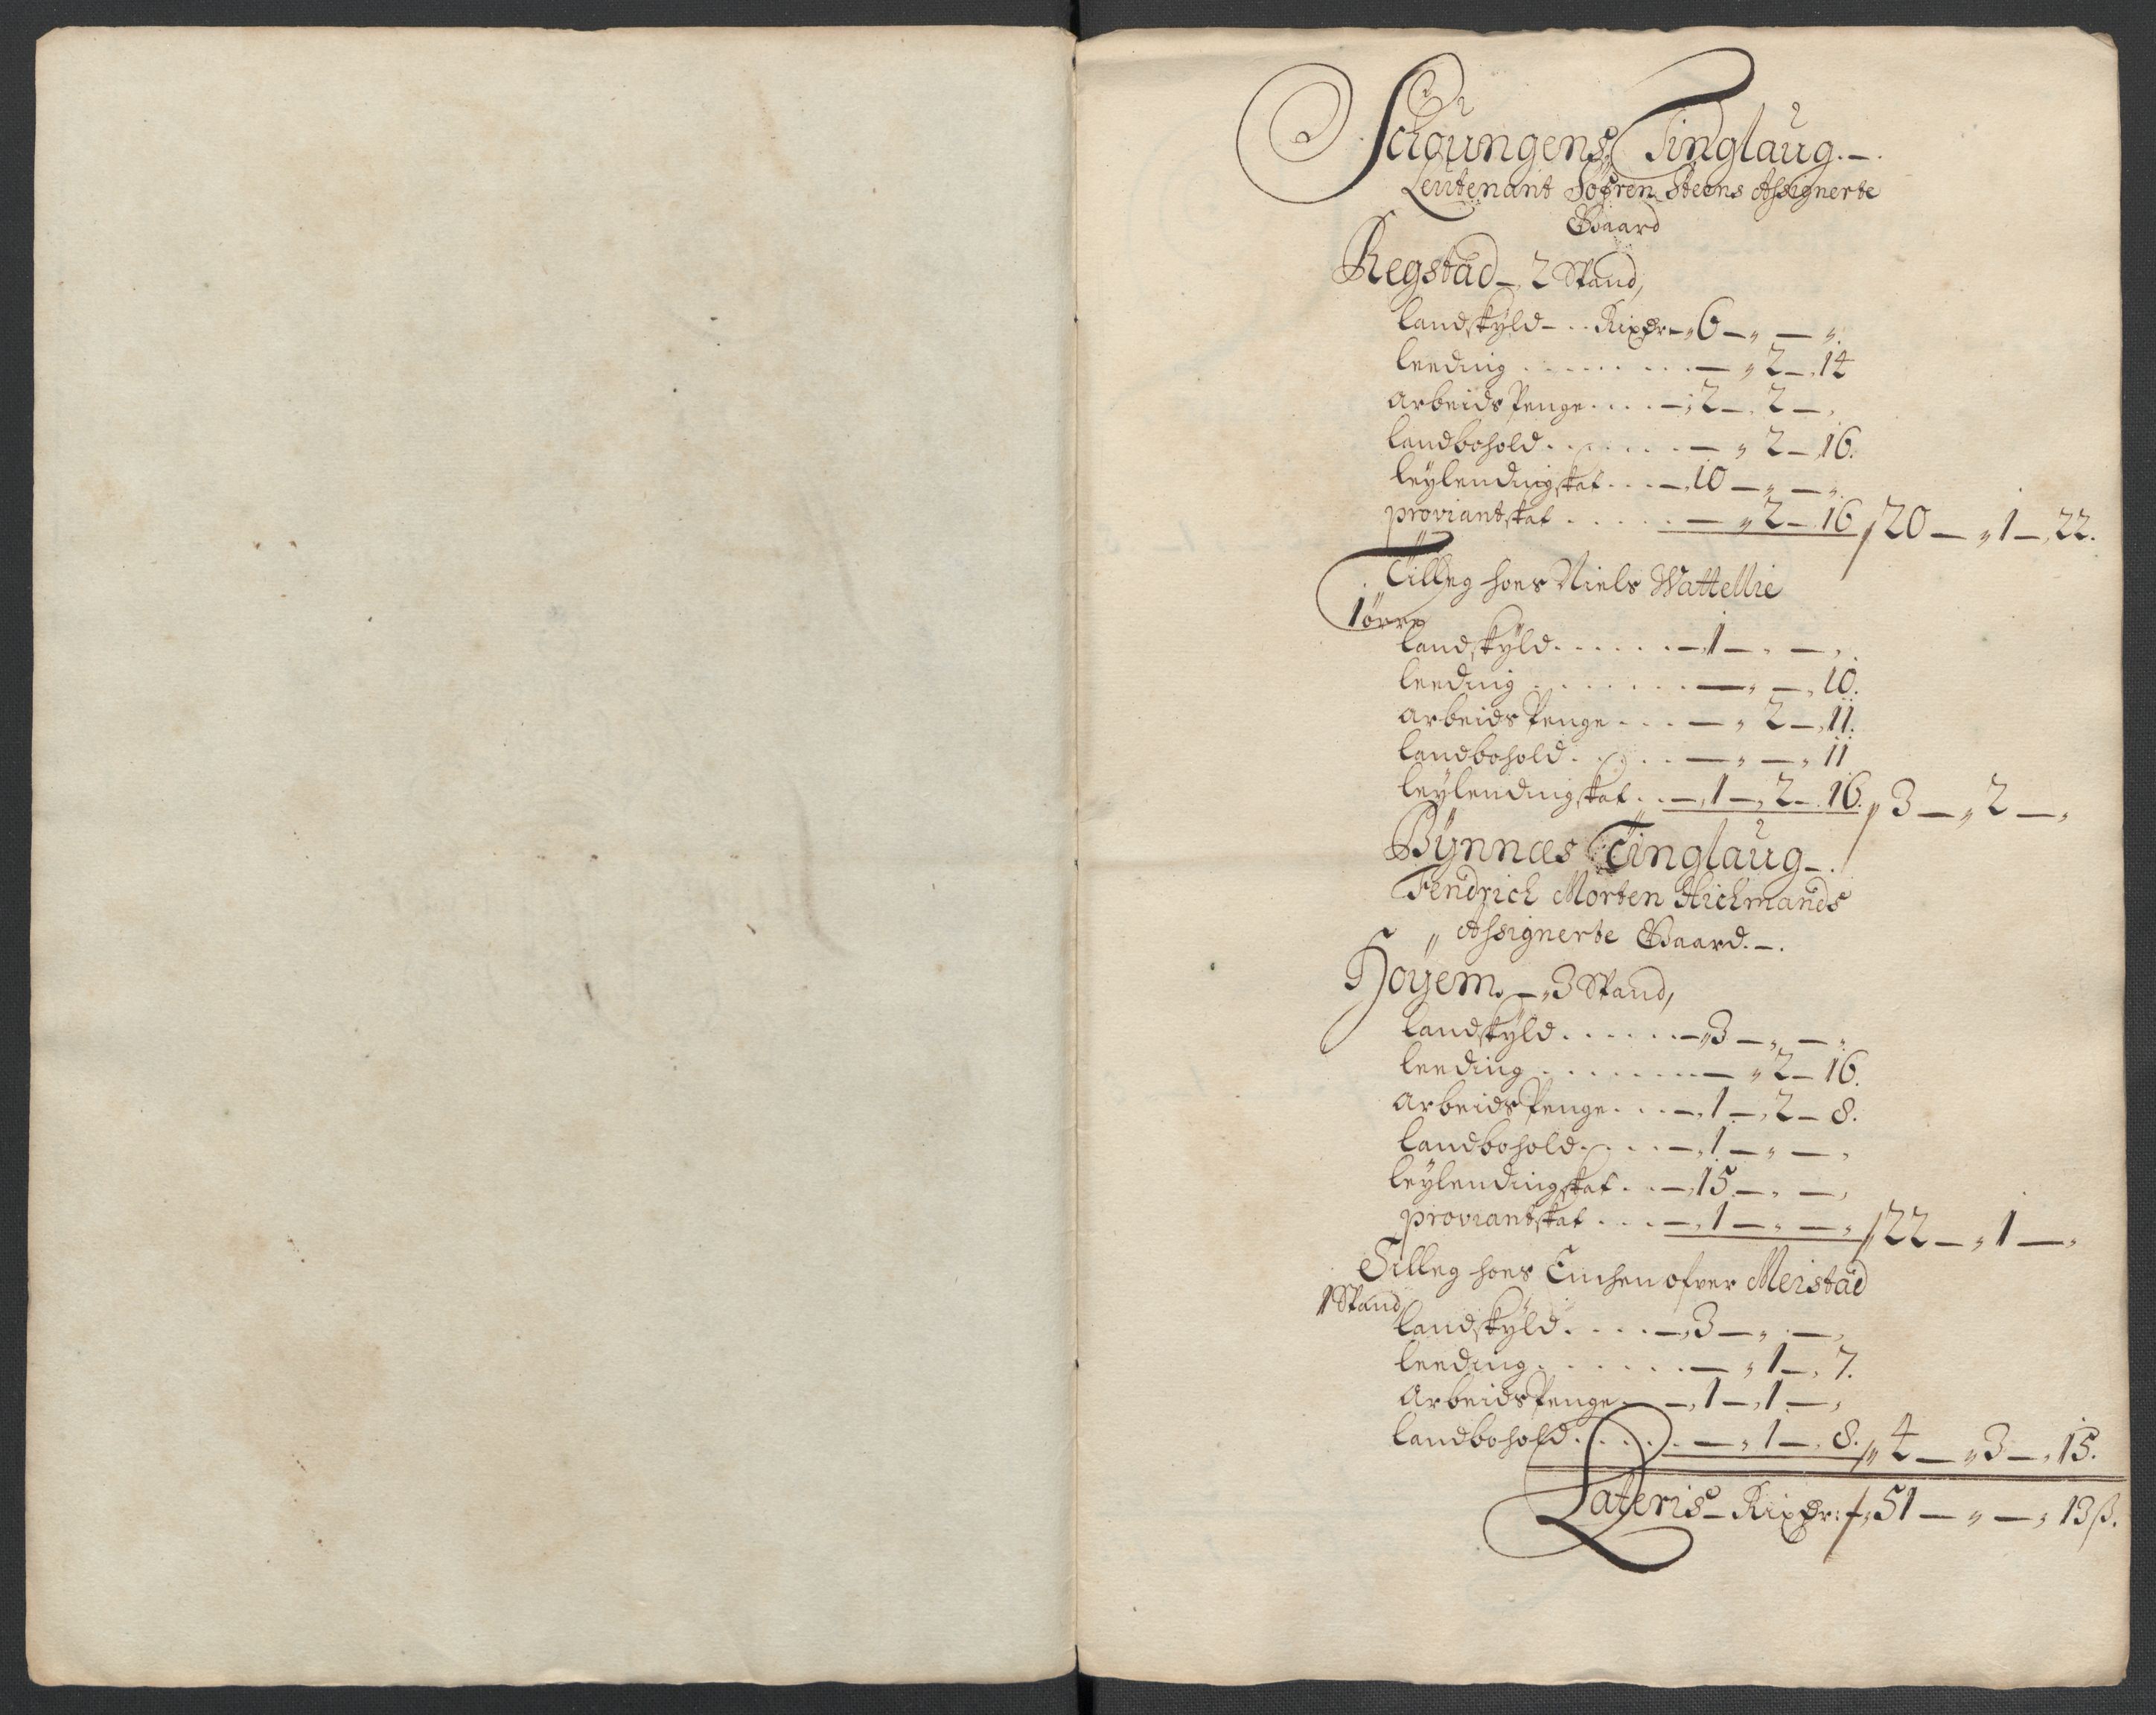 Schaungens Tinglaug.-.
Leutenant Søfren Steens Assignerte
Gaard
Regstad - 2 Spand,
landskyld - . . Rixdr - „ 6 - „ - „.
leeding . . . . . . . . - „ 2 - 14
arbeids Penge . . . . - 2 - 2 - ,
landbohold . . . . . . - „ 2 - 16.
leylendingskat . . . - 10 - „ - „.
proviantskat . . . . . - „ 2 - 16 / 20 - „ 1 - 22.
Tilleg hoes Niels Wattellie
1 ørre
landskyld . . . . . . - 1 - „ - ,
leeding . . . . . . . - „ - , 10.
arbeids Penge . . . - „ 2 - 11.
landbohold . . . . . - „ - „ 11
leylendingskat . . - 1 - 2 - 16. / 3 - „ 2 - ,
Bynnæs Tinglaug -.
Fendrich Morten Hichmands
Assignerte Gaard.-.
Hoyem. - „ 3 Spand,
landskyld . . . . . . - „ 3 - „ - „
leeding . . . . . . . . - „ 2 - 16.
arbeids Penge . . . - 1 - 2 - 8.
landbohold . . . . - 1 - „ - ,
leylendingskat . . - 15 - „ - ,
proviantskat . . . . - 1 - „ - „ / 22 - „ 1 - „
Tilleg hoes Enchen ofver Meistad
1 Spand
landskyld . . . . - 3 - „ - ,
leeding . . . . . . . - „ 1 - , 7.
arbeids Penge - 1 - 1 - ,
landbohold . . . . . - „ 1 - 8. / 4 - „ 3 - 15.
Lateris - Rixdr: 51 - „ - „ 13 ß.